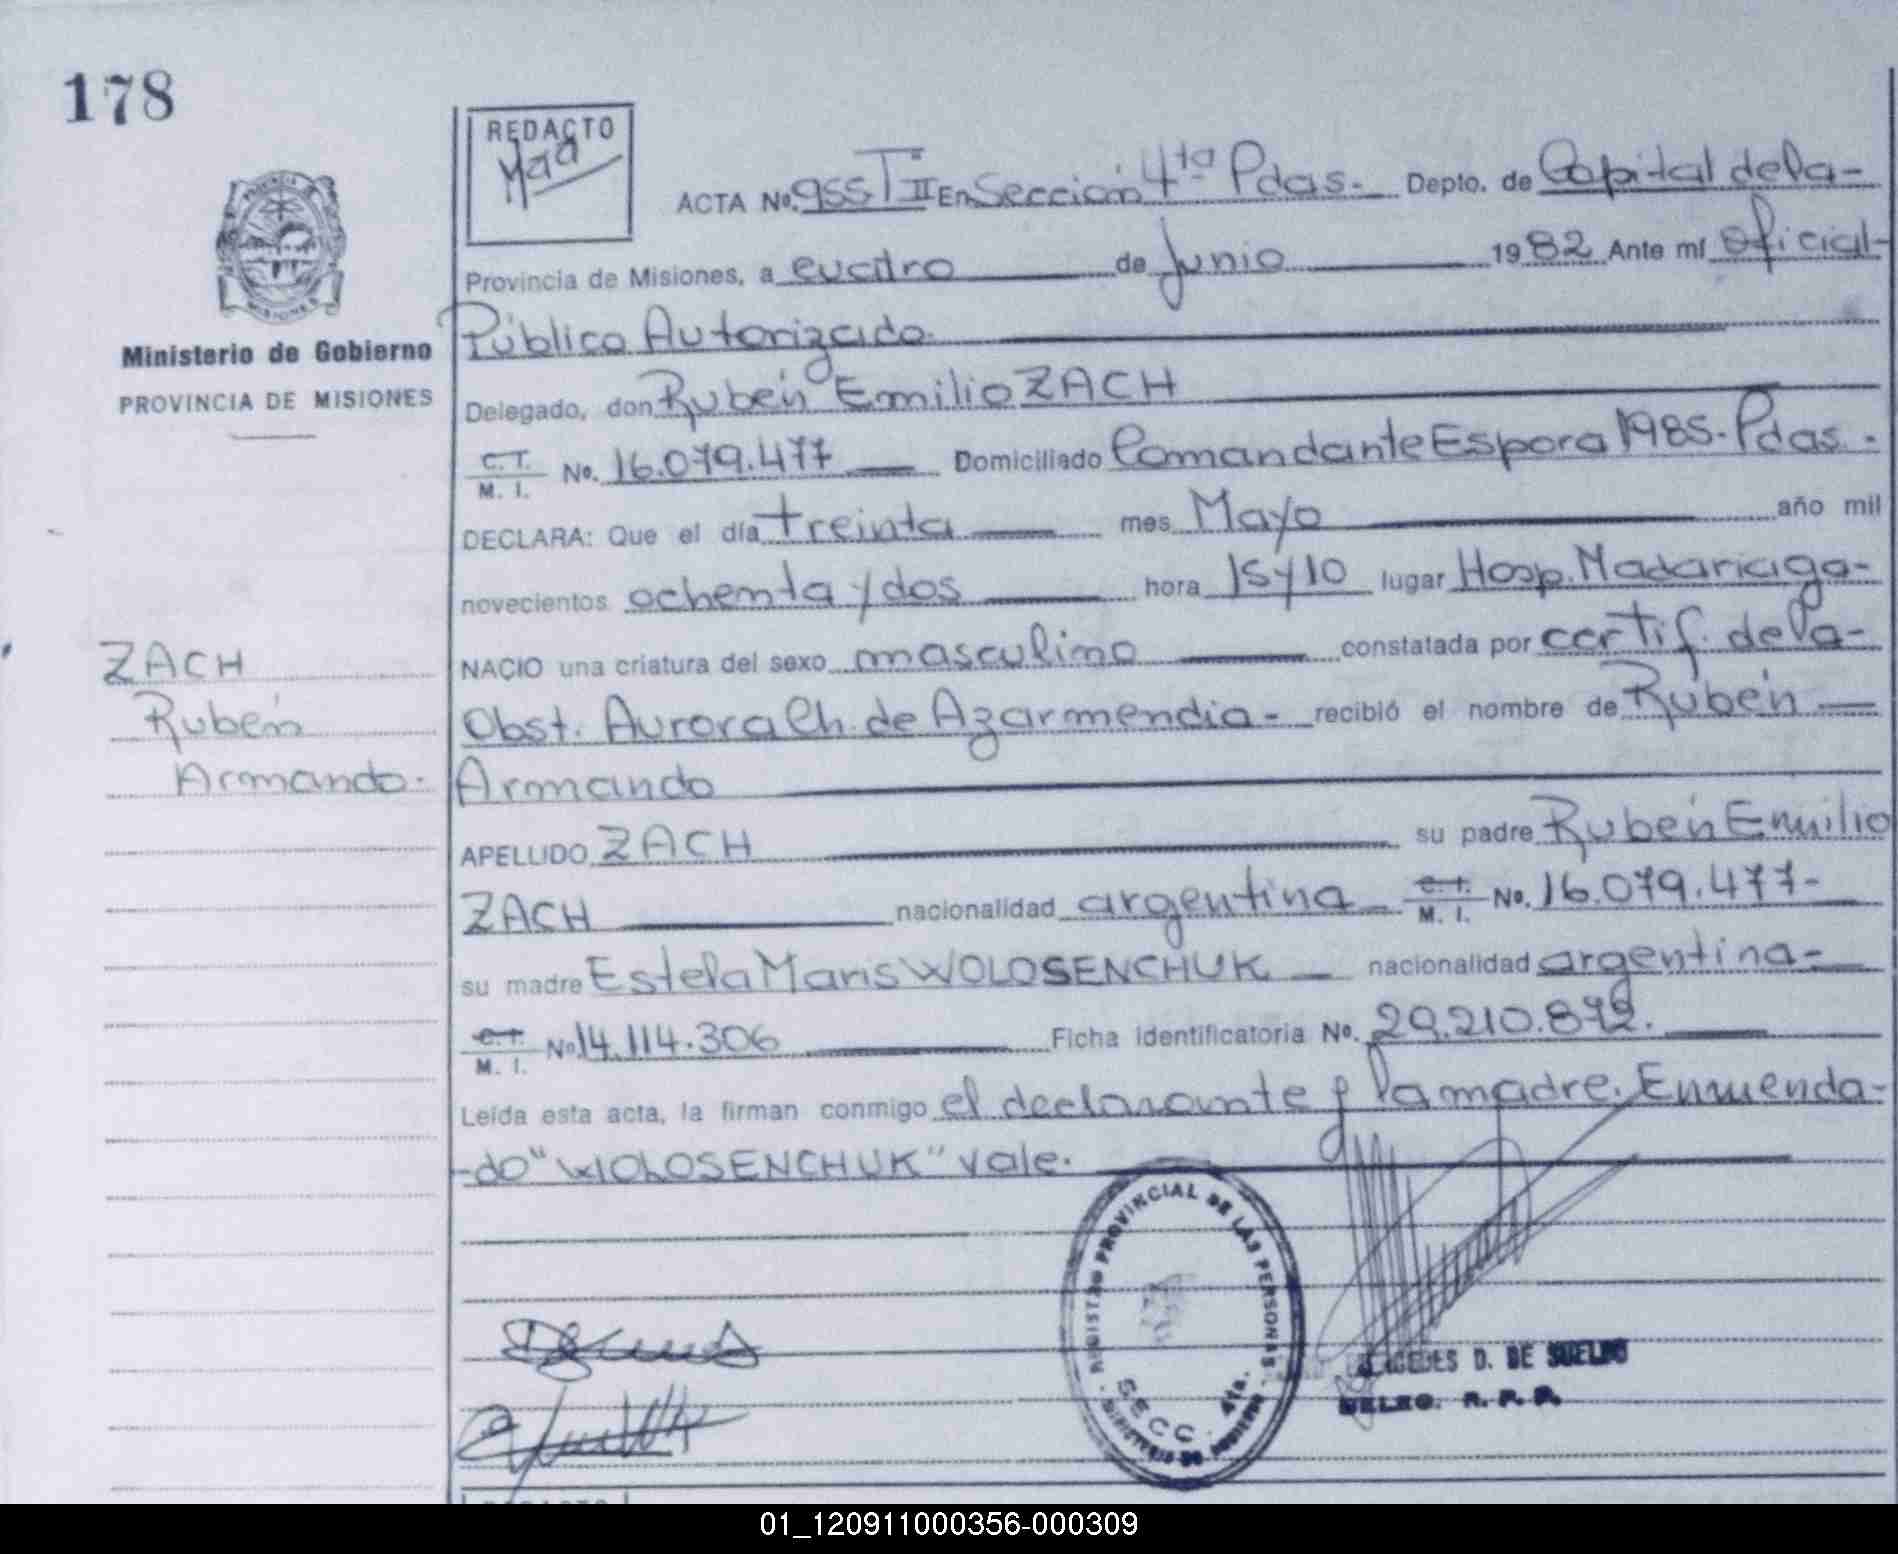 178
REDACTO
ACTA No. 955 T II En Sección 4ta Pdas. - Depto. de Capital de la -
Provincia de Misiones, a cuatro de Junio 1982 Ante mí Oficial -
Público Autorizado.
Ministerio de Gobierno
PROVINCIA DE MISIONES
Delegado, don Rubén Emilio ZACH
C.T. M. I. No. 16.079.477 Domiciliado Comandante Espora 1985. Pdas. -
DECLARA: Que el día treinta mes Mayo año mil
novecientos ochenta y dos hora 15 y 10 lugar Hosp. Madariaga -
ZACH
Rubén
Armando.
NACIO una criatura del sexo masculino constatada por certif. de la -
Obst. Aurora Ch. de Azarmendia - recibió el nombre de Rubén
Armando
APELLIDO ZACH su padre Rubén Emilio
ZACH nacionalidad argentina C.T. M. I. No. 16.079.477 -
su madre Estela Maris WOLOSENCHUK nacionalidad argentina -
C.T. M. I. No 14.114.306 Ficha identificatoria No. 29.210.872.
Leída esta acta, la firman conmigo el declarante y la madre. Enmenda-
-do "WOLOSENCHUK" vale.
REGISTRO PROVINCIAL DE LAS PERSONAS
SECC. 4ta.
MINISTERIO DE GOBIERNO
D. DE SUELDO
DELEG. R. P. P.
01_120911000356-000309